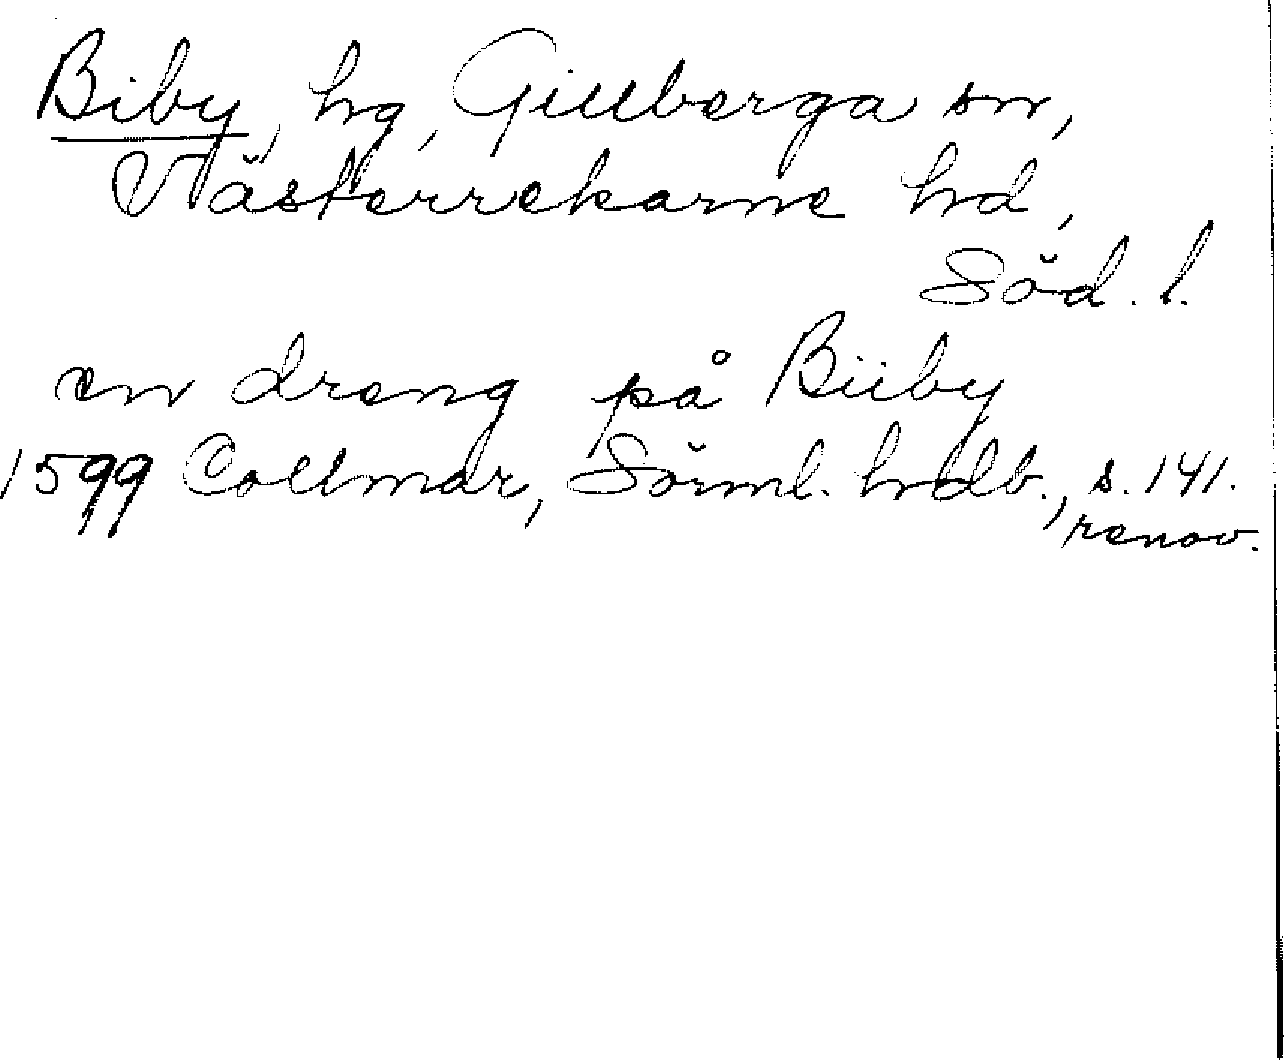 Biby, hg, Gillberga sn,
Västerrekarne hd,
Söd. l.
en dreng på Biiby
1599 Collmar, Sörml. hrdb., s. 141.
renov.